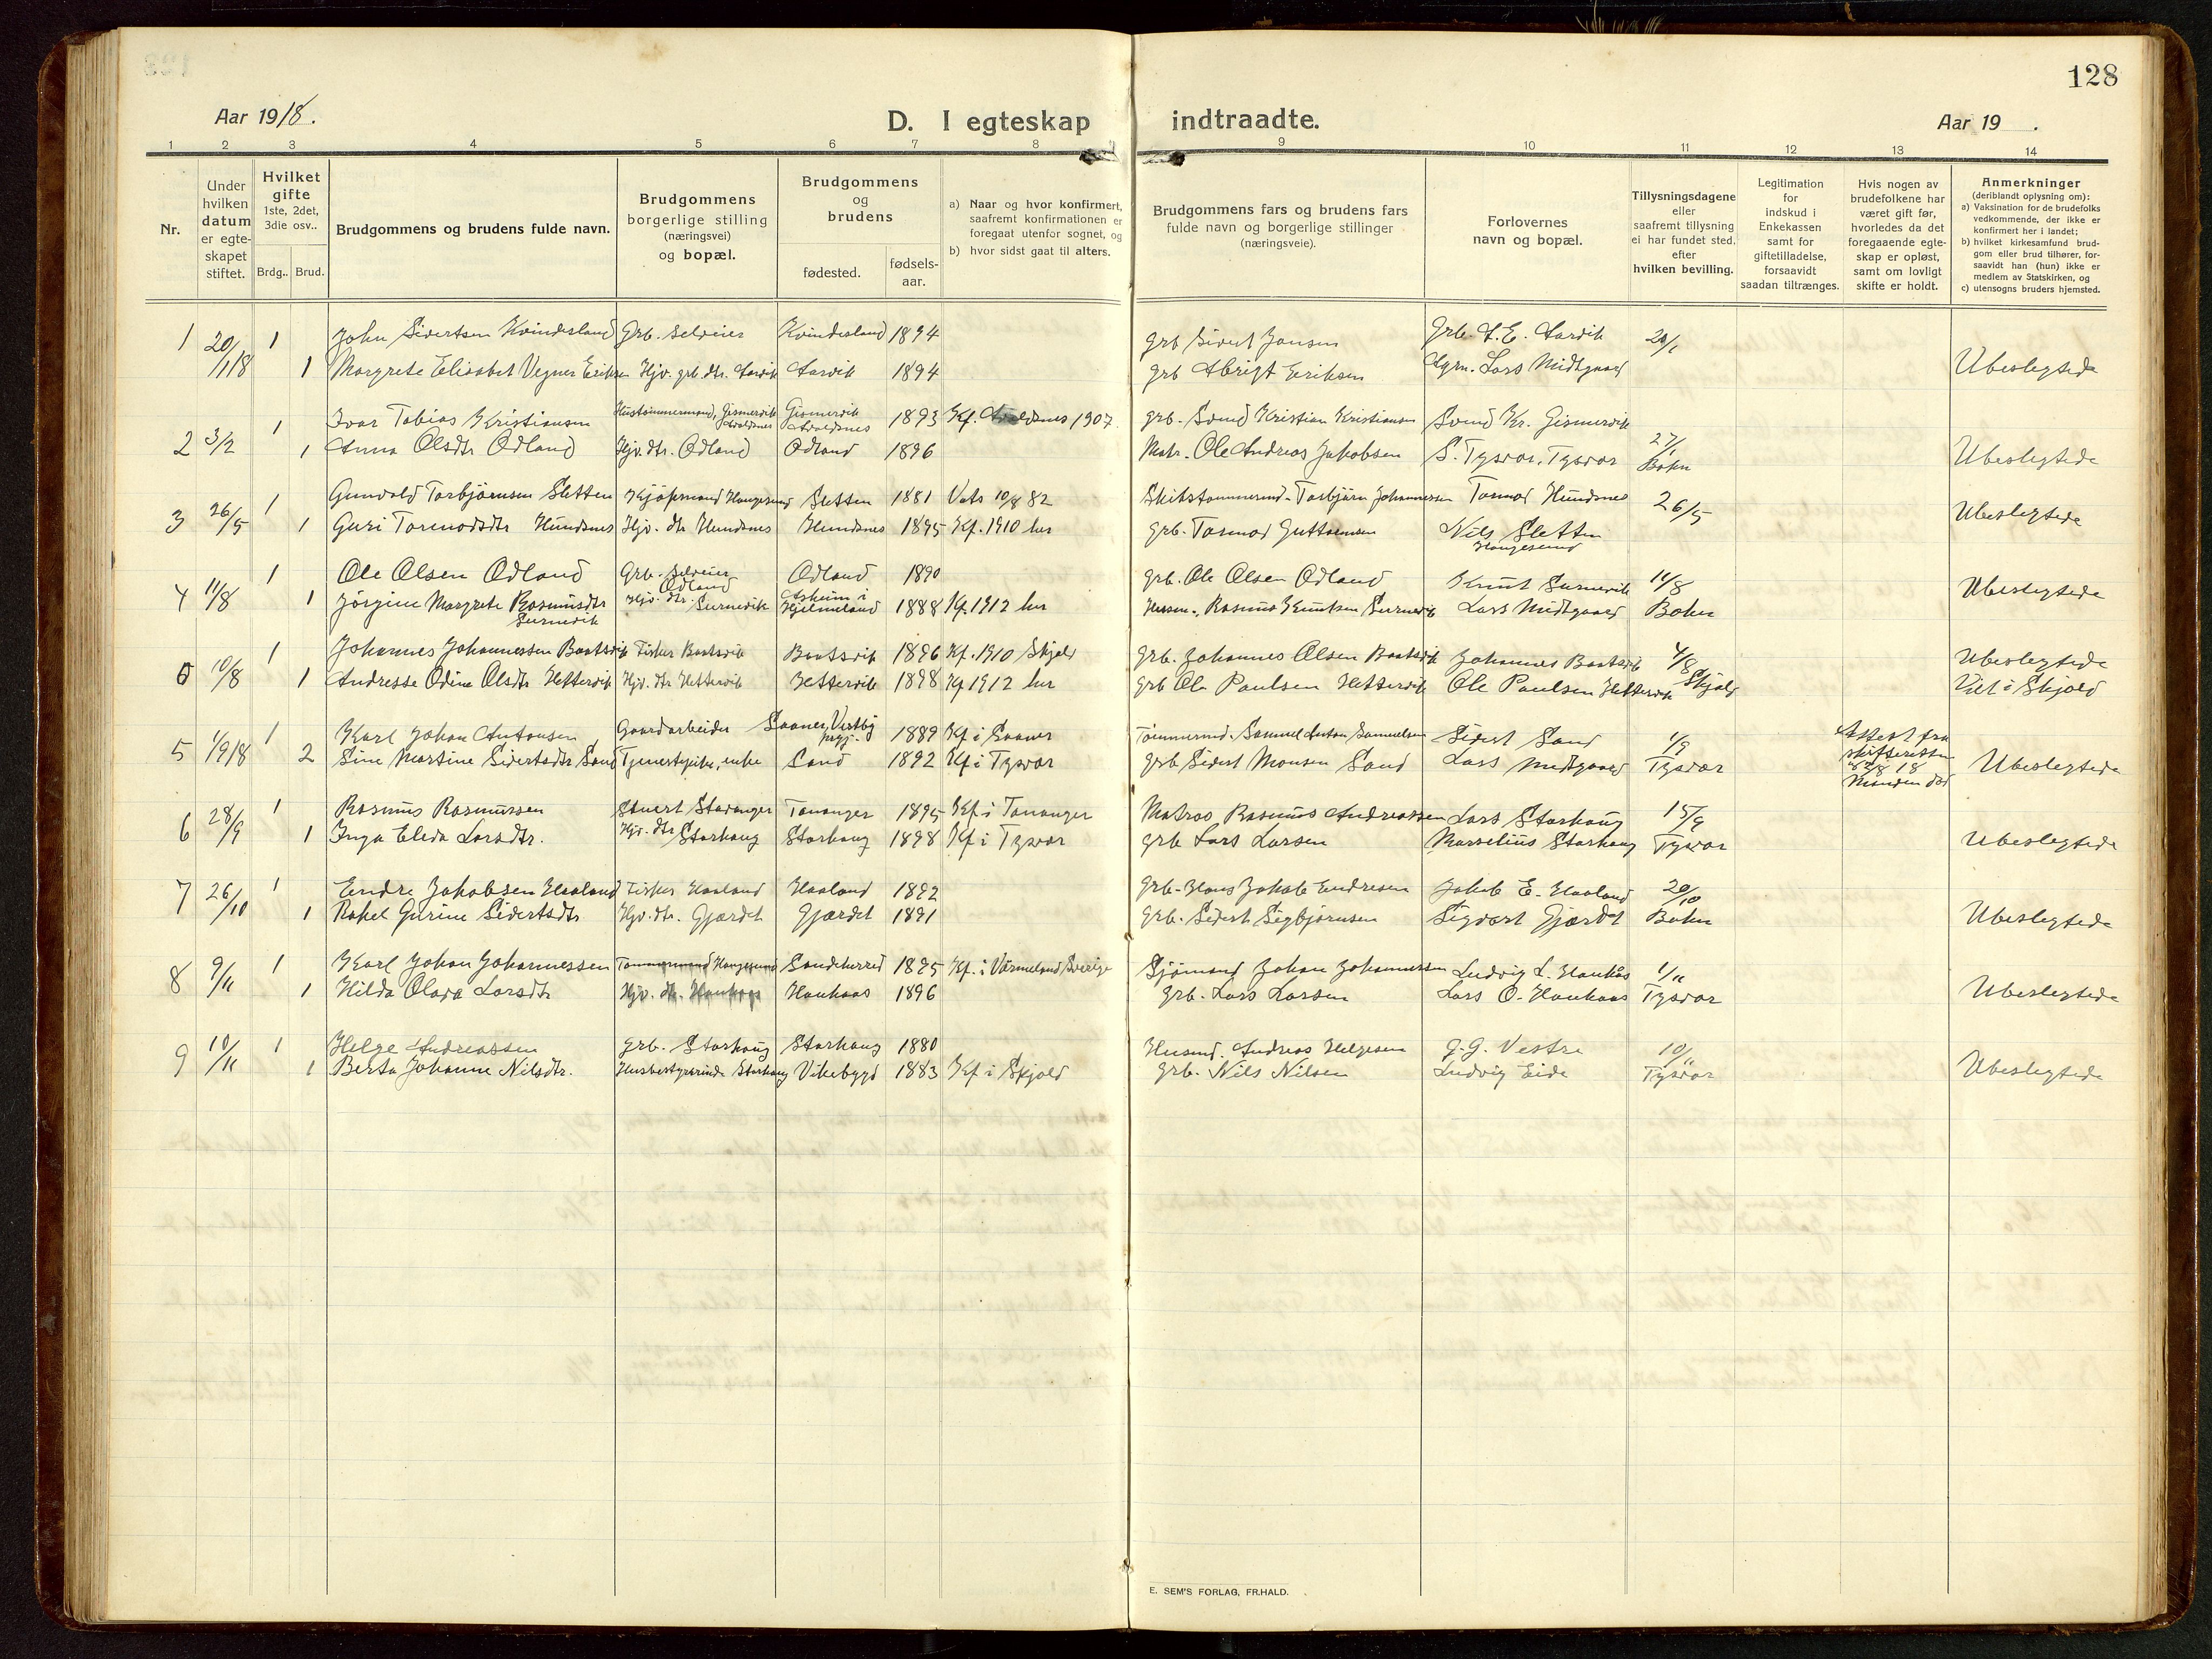 128
Aar 1918.
D. I egteskap indtraadte.
Aar 19 .
1 2 3 4 5 6 7 8 9 10 11 12 13 14
Nr.
Under hvilken datum er egte-skapet stiftet.
Hvilket gifte 1ste, 2det, 3die osv..
Brdg.. Brud.
Brudgommens og brudens fulde navn.
Brudgommens borgerlige stilling (næringsvei) og bopæl.
Brudgommens og brudens
fødested.
fødsels-aar.
a) Naar og hvor konfirmert, saafremt konfirmationen er foregaat utenfor sognet, og
b) hvor sidst gaat til alters.
Brudgommens fars og brudens fars fulde navn og borgerlige stillinger (næringsveie).
Forlovernes navn og bopæl.
Tillysningsdagene eller saafremt tillysning ei har fundet sted. efter hvilken bevilling.
Legitimation for indskud i Enkekassen samt for giftetilladelse, forsaavidt saadan tiltrænges.
Hvis nogen av brudefolkene har været gift før, hvorledes da det foregaaende egte-skap er opløst, samt om lovligt skifte er holdt.
Anmerkninger (deriblandt oplysning om):
a) Vaksination for de brudefolks vedkommende, der ikke er konfirmert her i landet;
b) hvilket kirkesamfund brud-gom eller brud tilhører, for-saavidt han (hun) ikke er medlem av Statskirken, og
c) utensogns bruders hjemsted.
1 20/1 18 1 John Sivertsen Kvindesland Grb. selveier Kvindesland 1894 grb Sivert Jonsen Grb. A. E. Aarvik 20/1
1 Margrete Elisabet Vegner Eriksen Hjv. grb. dtr. Aarvik Aarvik 1894 grb Abrigt Eriksen Agrn. Lars Midtgaard Ubeslegtede
1 Ivar Tobias Kristiansen Hustømmermand, Gismervik Avaldsnes Gismervik Avaldsnes 1893 Kf. Avaldsnes 1907. grb. Svend Kristian Kristiansen Svend Kr. Gismervik
2 3/2 1 Anna Olsdtr Ødland Hjv. dtr. Ødland Ødland 1896 Matr. Ole Andreas Jakobsen S. Tysvær, Tysvær 27/1 Bokn Ubeslegtede
1 Gunvald Torbjørnsen Sletten Kjøpmand Haugesund Sletten 1881 Vats 10/8 82 Skibstømmermd. Torbjørn Johannessen Tormod Hundsnes 26/5
3 26/5 1 Guri Tormodsdtr Hundsnes Hjv. dtr Hundsnes Hundsnes 1895 Kf. 1910 her grb. Tormod Guttormsen Nils Sletten Haugesund Ubeslegtede
1 Ole Olsen Ødland Grb. selveier Ødland Ødland 1890 grb. Ole Olsen Ødland Knut Surnevik 11/8
4 11/8 1 Jørgine Margrete Rasmusdtr Surnevik Hjv. dtr. Surnevik Askeim i Hjelmeland 1888 Kf 1912 her Husm. Rasmus Knutsen Surnevik Lars Midtgaard Bokn Ubeslegtede
1 Johannes Johannessen Baatsvik Fisker Baatsvik Baatsvik 1896 Kf. 1910 Skjold Grb. Johannes Olsen Baatsvik Johannes Baatsvik 4/8 Skjold Ubeslegtede
0 10/8 1 Andresse Odine Olsdtr Hettervik Hjv. dtr Hettervik Hettervik 1898 Kf 1912 her grb Ole Paulsen Hettervik Ole Paulsen Hettervik Viet i Skjold
1 Karl Johan Antonsen Gaardarbeider Saaner, Vestby prgj. 1889 Kf i Saaner Tømmermd. Samuel Anton Samuelsen Sivert Sand 1/9
5 1/9 18 2 Sine Martine Sivertsdtr Sand Tjenestepike, enke Sand 1892 Kf i Tysvær grb Sivert Monsen Sand Lars Midtgaard Tysvær Attest fra skifteretten 8/8 18 Manden død Ubeslegtede
1 Rasmus Rasmussen Stuert Stavanger Tananger 1895 Kf i Tananger Matros Rasmus Andreassen Lars Storhaug 15/9
6 28/9 1 Inga Elida Larsdtr. Hjv. dtr Storhaug Storhaug 1898 Kf i Tysvær grb Lars Larsen Marselius Storhaug Tysvær Ubeslegtede
7 26/10 1 Endre Jakobsen Haaland Fisker Haaland Haaland 1892 Grb. Hans Jakob Endresen Jakob E. Haaland 20/10
1 Rakel Gurine Sivertsdtr Hjv. dtr. Gjærdet Gjærdet 1891 Grb. Sivert Sigbjørnsen Sigvart Gjærdet Bokn Ubeslegtede
8 9/11 1 Karl Johan Johannessen Tømmermand Haugesund Sandeherred 1895 Kf. i Värmeland Sverige Sjømand Johan Johannessen Ludvig L. Haukås 1/11
1 Hilda Olava Larsdtr Hjv. dtr. Haukaas Haukaas 1896 Grb. Lars Larsen Lars O. Haukaas Tysvær Ubeslegtede
9 10/11 1 Helge Andreassen grb. Storhaug Storhaug 1880 Husmd. Andreas Helgesen G. G. Vestre 10/11
1 Berta Johanne Nilsdtr. Husbestyrerinde Storhaug Vikebygd 1883 Kf i Skjold Grb. Nils Nilsen Ludvig Eide Tysvær Ubeslegtede
E. SEM'S FORLAG, FR.HALD.